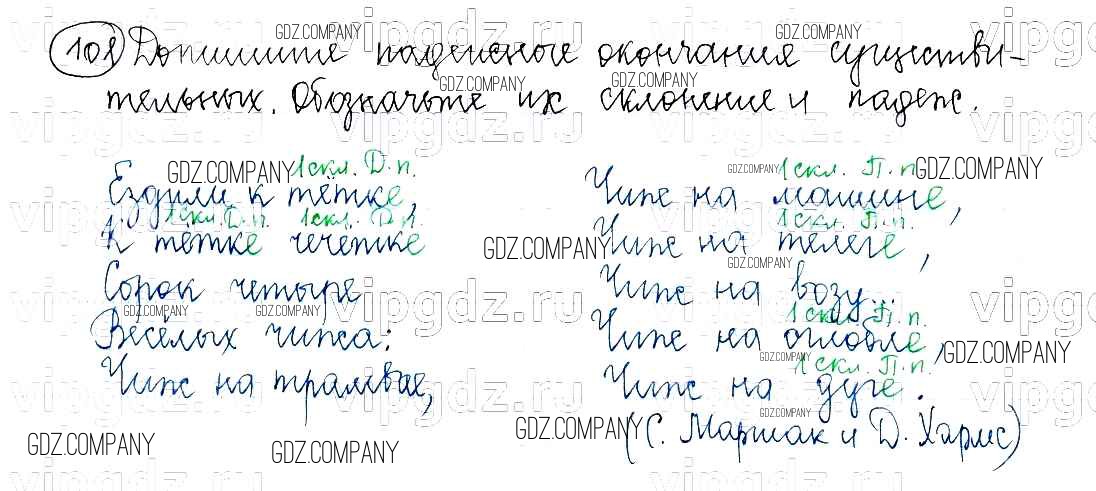 108 Допишите падежные окончания существи-
тельных. Обозначьте их склонение и падеж.
1 скл. Д.п.
Ездили к тётке,
1 скл. Д.п. 1 скл. Д.п.
К тётке чечётке
Сорок четыре
Весёлых чижа:
Чиж на трамвае,
1 скл. П.п.
Чиж на машине,
1 скл. П.п.
Чиж на телеге,
Чиж на возу...
1 скл. П.п.
Чиж на оглобле,
1 скл. П.п.
Чиж на дуге.
(С. Маршак и Д. Хармс)
GDZ.COMPANY
vipgdz.ru